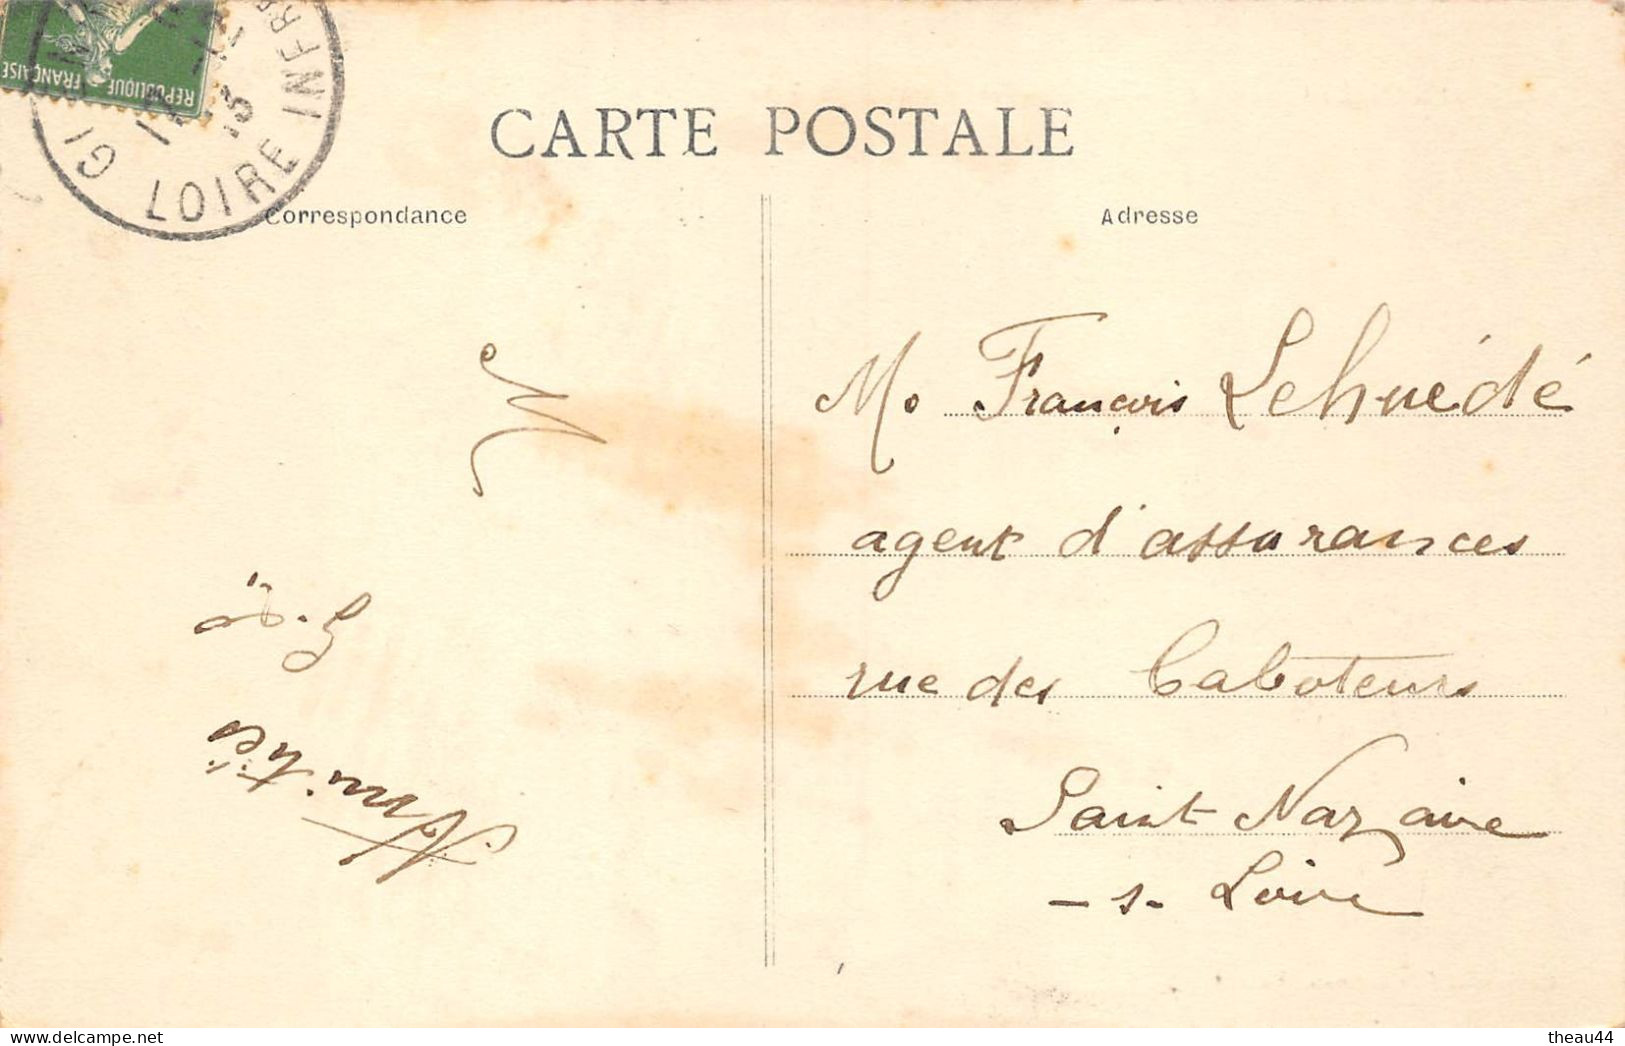 REPUBLIQUE FRANÇAISE
LOIRE INFRE
13
CARTE POSTALE
Correspondance
Adresse
Amitiés
M. François Lehuédé
agent d'assurances
rue des Caboteurs
Saint-Nazaire
-s- Loire
theau44